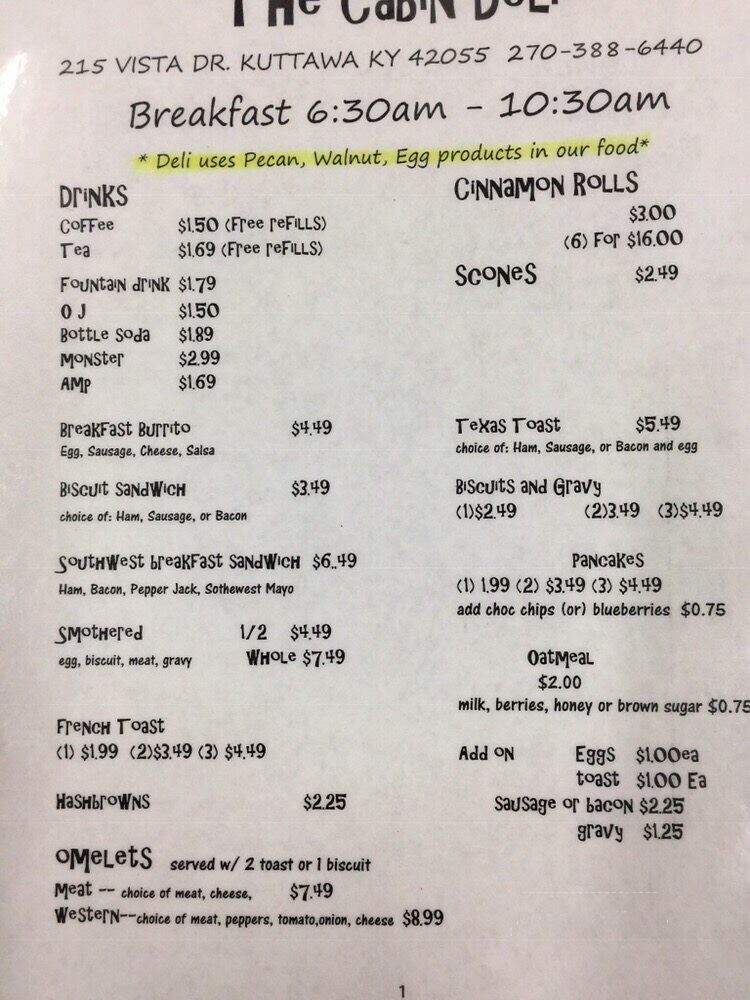 The Cabin Deli
215 VISTA DR. KUTTAWA KY 42055 270-388-6440
Breakfast 6:30am - 10:30am
* Deli uses Pecan, Walnut, Egg products in our food*
Drinks
Coffee $1.50 (Free refills)
Tea $1.69 (Free refills)
Fountain drink $1.79
O J $1.50
Bottle Soda $1.89
Monster $2.99
AMP $1.69
Cinnamon Rolls
$3.00
(6) For $16.00
Scones $2.49
Breakfast Burrito $4.49
Egg, Sausage, Cheese, Salsa
Biscuit Sandwich $3.49
choice of: Ham, Sausage, or Bacon
Southwest breakfast sandwich $6..49
Ham, Bacon, Pepper Jack, Sothewest Mayo
Smothered 1/2 $4.49
egg, biscuit, meat, gravy Whole $7.49
French Toast
(1) $1.99 (2)$3.49 (3) $4.49
Hashbrowns $2.25
Texas Toast $5.49
choice of: Ham, Sausage, or Bacon and egg
Biscuits and Gravy
(1)$2.49 (2)3.49 (3)$4.49
Pancakes
(1) 1.99 (2) $3.49 (3) $4.49
add choc chips (or) blueberries $0.75
Oatmeal
$2.00
milk, berries, honey or brown sugar $0.75
Add on Eggs $1.00ea
toast $1.00 Ea
Sausage or bacon $2.25
gravy $1.25
Omelets served w/ 2 toast or 1 biscuit
Meat -- choice of meat, cheese, $7.49
Western--choice of meat, peppers, tomato,onion, cheese $8.99
1